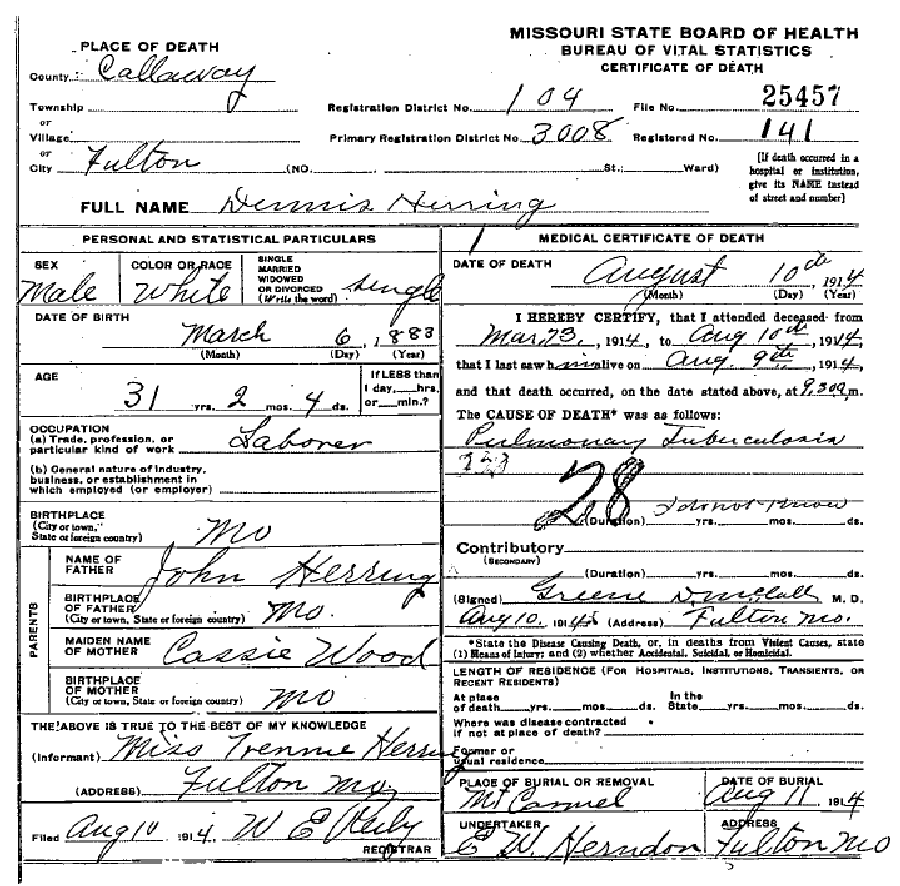 MISSOURI STATE BOARD OF HEALTH
BUREAU OF VITAL STATISTICS
CERTIFICATE OF DEATH
PLACE OF DEATH
County Callaway
Township
or
Village
or
City Fulton (NO. St.; Ward)
Registration District No. 104 File No. 25457
Primary Registration District No. 3008 Registered No. 141
[If death occurred in a
hospital or institution,
give its NAME instead
of street and number]
FULL NAME Dennis Herring
PERSONAL AND STATISTICAL PARTICULARS
SEX
Male
COLOR OR RACE
White
SINGLE
MARRIED
WIDOWED
OR DIVORCED
(Write the word)
single
DATE OF BIRTH
March 6, 1883
(Month) (Day) (Year)
AGE
31 yrs. 2 mos. 4 ds.
If LESS than
1 day, hrs.
or min.?
OCCUPATION
(a) Trade, profession, or
particular kind of work Laborer
(b) General nature of industry,
business, or establishment in
which employed (or employer)
BIRTHPLACE
(City or town,
State or foreign country)
Mo
PARENTS
NAME OF
FATHER John Herring
BIRTHPLACE
OF FATHER
(City or town, State or foreign country) Mo.
MAIDEN NAME
OF MOTHER Cassie Wood
BIRTHPLACE
OF MOTHER
(City or town, State or foreign country) Mo
THE ABOVE IS TRUE TO THE BEST OF MY KNOWLEDGE
(Informant) Miss Trennie Herring
(ADDRESS) Fulton Mo.
Filed Aug 10 1914 W E
REGISTRAR
MEDICAL CERTIFICATE OF DEATH
DATE OF DEATH
August 10th, 1914
(Month) (Day) (Year)
I HEREBY CERTIFY, that I attended deceased from
Mar 23, 1914, to Aug 10th, 1914,
that I last saw him alive on Aug 9th, 1914,
and that death occurred, on the date stated above, at 9.30 a m.
The CAUSE OF DEATH* was as follows:
Pulmonary Tuberculosis
28
I do not know
(Duration) yrs. mos. ds.
Contributory
(SECONDARY)
(Duration) yrs. mos. ds.
(Signed) Greene M. D.
Aug 10, 1914 (Address) Fulton Mo.
*State the Disease Causing Death, or, in deaths from Violent Causes, state
(1) Means of Injury; and (2) whether Accidental, Suicidal, or Homicidal.
LENGTH OF RESIDENCE (FOR HOSPITALS, INSTITUTIONS, TRANSIENTS, OR
RECENT RESIDENTS)
At place In the
of death yrs. mos. ds. State yrs. mos. ds.
Where was disease contracted
if not at place of death?
Former or
usual residence
PLACE OF BURIAL OR REMOVAL
Mt Carmel
DATE OF BURIAL
Aug 11 1914
UNDERTAKER
E W. Herndon
ADDRESS
Fulton Mo